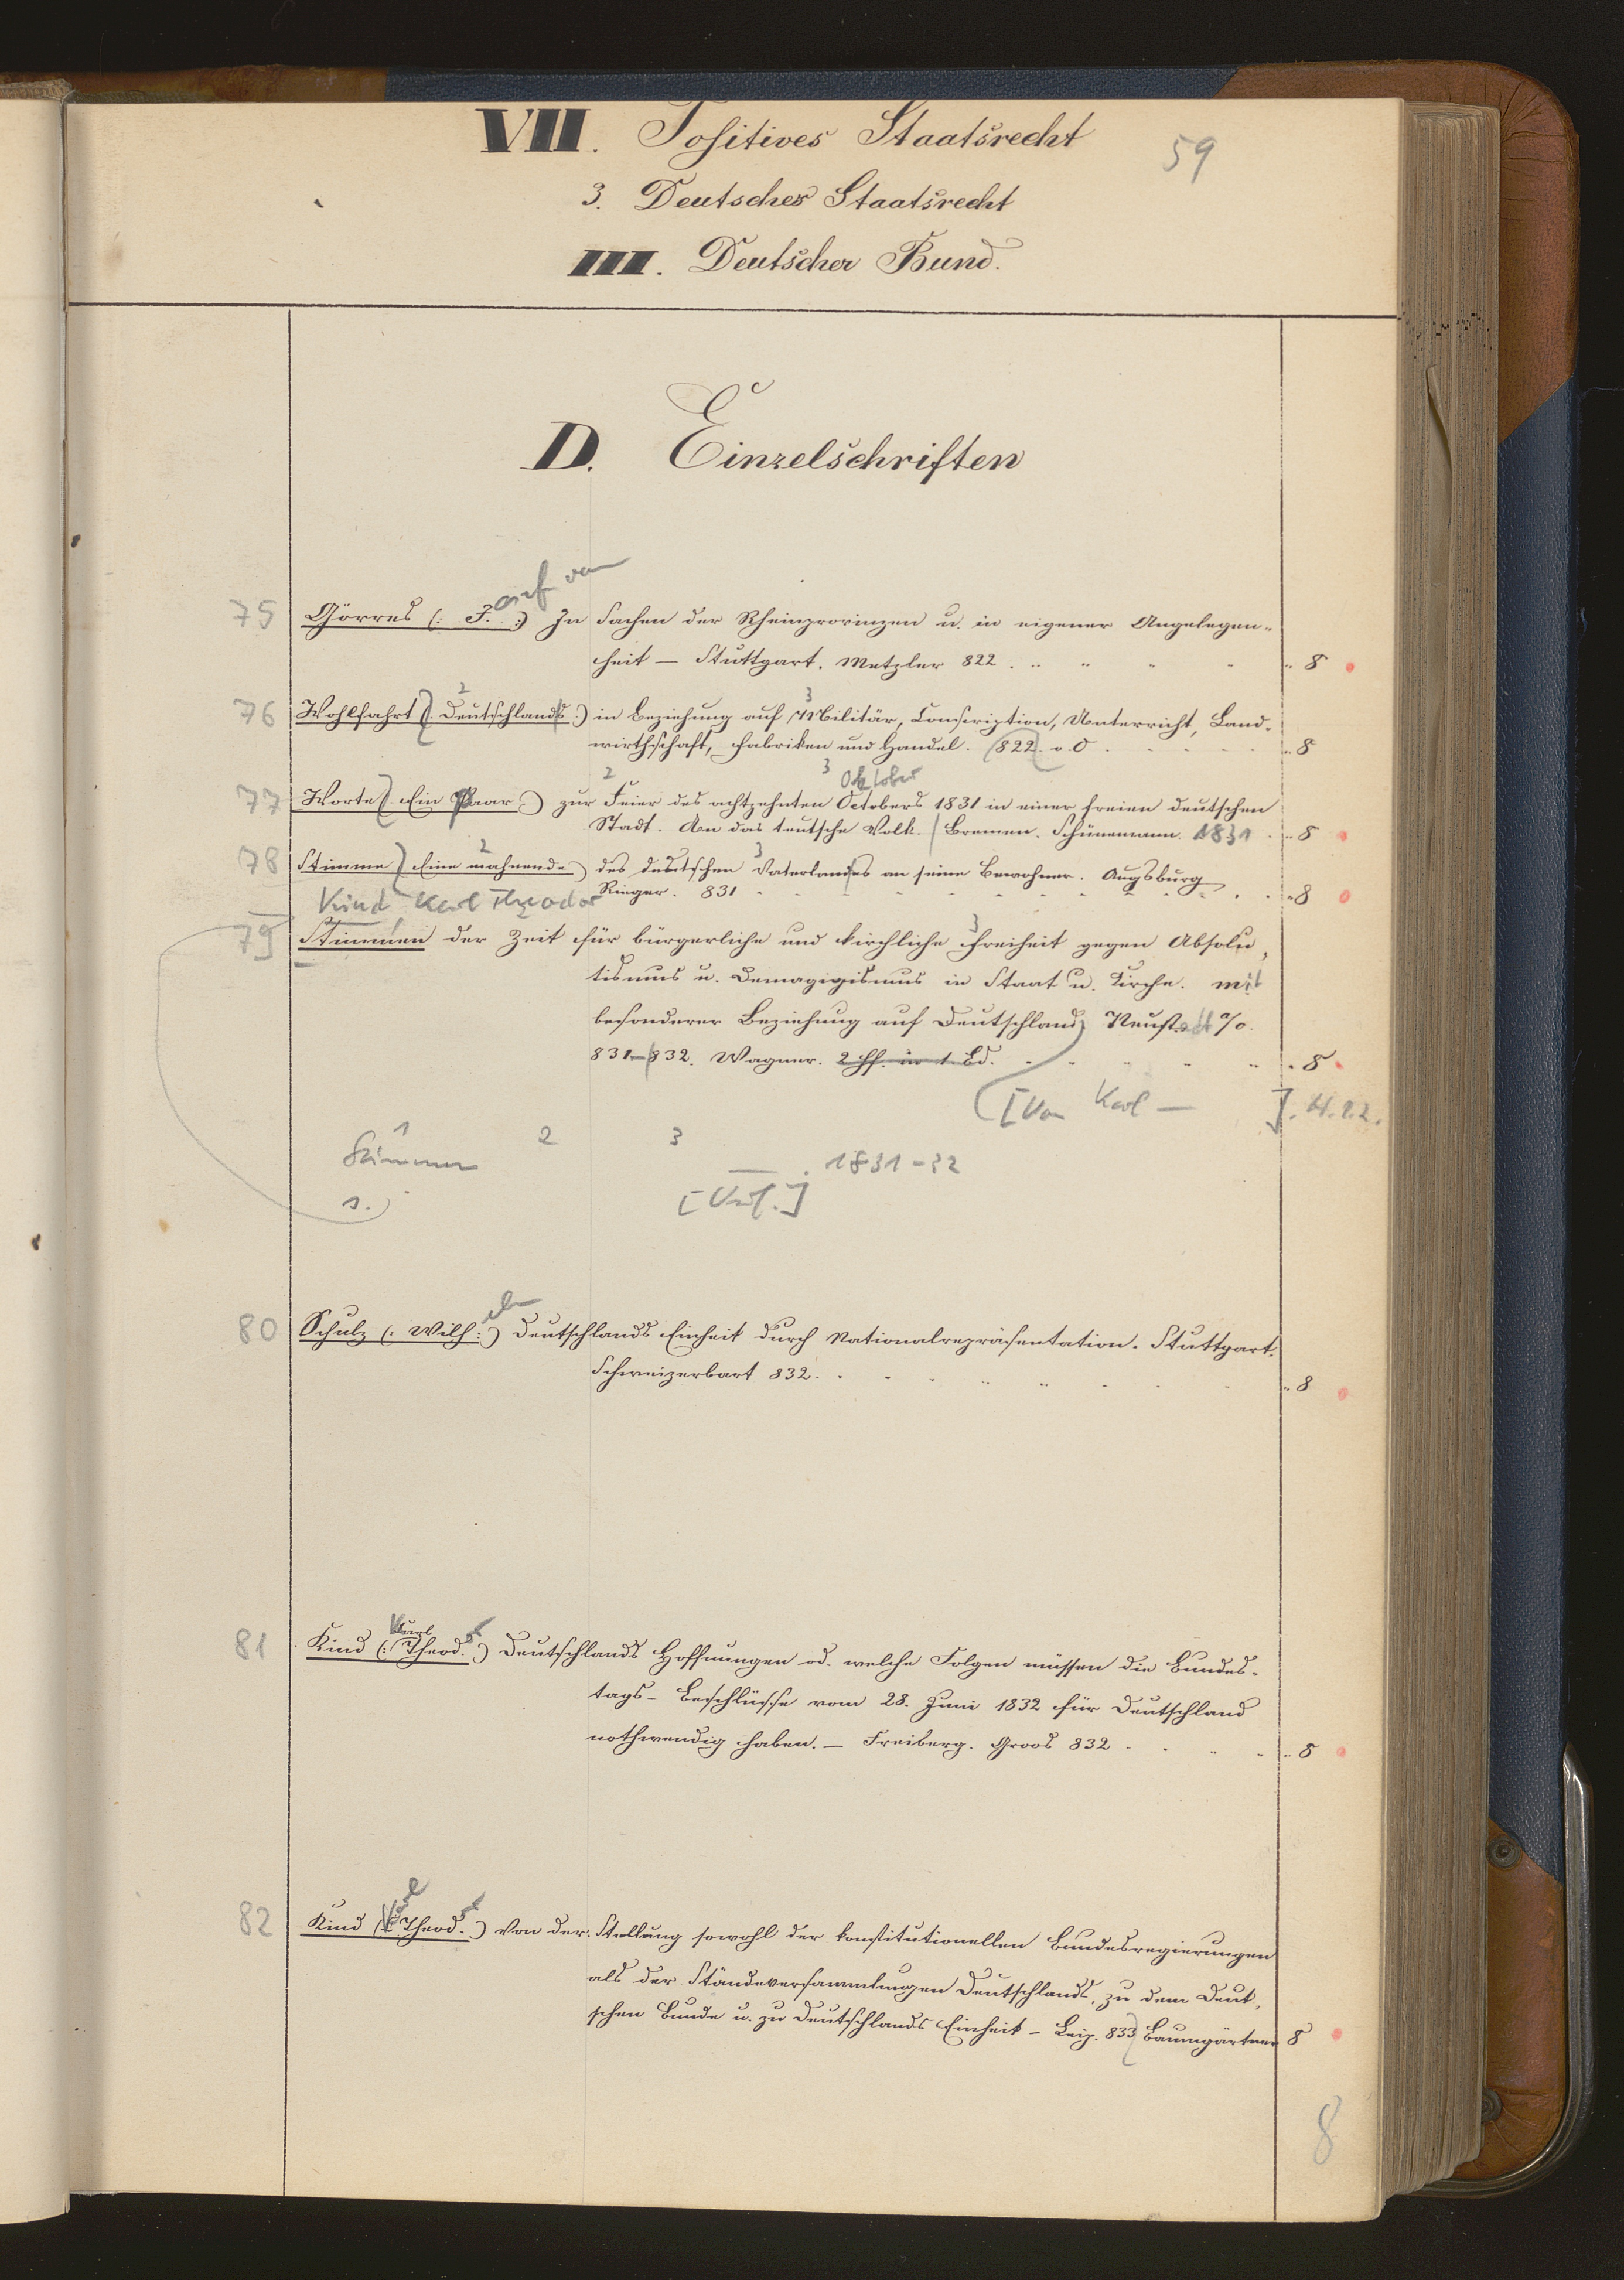 VII. Positives Staatsrecht
59
3. Deutsches Staatsrecht
III. Deutscher Bund.
D. Einzelschriften
osef von
75 Görres (: J. :) In Sachen der Rheinprovinzen u. in eigener Angelegen-
heit — Stuttgart. Metzler 822 . 8
2 3
76 Wohlfahrt (: Deutschlands :) in Beziehung auf Militär, Conscription, Unterricht, Land-
wirthschaft, Fabriken und Handel. 822. o. O 8
2 3 Oktober
77 Worte (: Ein Paar :) zur Feier des achtzehnten Octobers 1831 in einer freien deutschen
Stadt. An das teutsche Volk. Bremen. Schünemann 1831 . 8
2 3
78 Stimme (: Eine mahnende :) des deutschen Vaterlandes an seine Bewohner. Augsburg
Rieger. 831 8
Kind Karl Theodor
3
79 Stimmen der Zeit für bürgerliche und kirchliche Freiheit gegen Absolu-
tismus u. Demagogismus in Staat u. Kirche. mit
besonderer Beziehung auf Deutschland Neustadt a/o.
831–832. Wagner. 2 Hf. in 1 Bd. 8
[Von Karl — ]. H. 1. 2.
1 2 3
Stimmen
— . 1831-32
s. [Verf.]
elm
80 Schulz (: Wilh: :) Deutschlands Einheit durch Nationalrepräsentation. Stuttgart.
Schweizerbart 832. 8
Karl
81 Kind (: Theod. :) Deutschlands Hoffnungen od. welche Folgen müssen die Bundes-
tags-Beschlüsse vom 28. Juni 1832 für Deutschland
nothwendig haben. — Freiberg. Groos 832 8
82 Kind (: Theod. :) Von der Stellung sowohl der konstitutionellen Bundesregierungen
als der Ständeversammlungen Deutschlands, zu dem Deut-
schen Bunde u. zu Deutschlands Einheit – Leip. 833 Baumgärtner 8
8